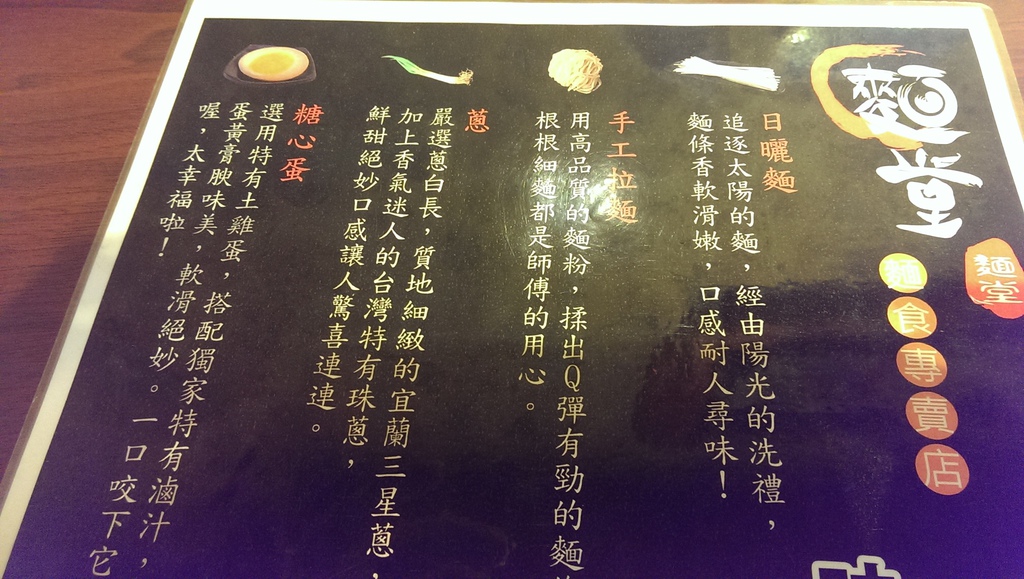 麵堂
麵堂
麵食專賣店
日曬麵
追逐太陽的麵，經由陽光的洗禮，
麵條香軟滑嫩，口感耐人尋味！
手工拉麵
用高品質的麵粉，揉出Q彈有勁的麵
根根細麵都是師傅的用心。
蔥
嚴選蔥白長，質地細緻的宜蘭三星蔥，
加上香氣迷人的台灣特有珠蔥，
鮮甜絕妙口感讓人驚喜連連。
糖心蛋
選用特有土雞蛋，搭配獨家特有滷汁，
蛋黃膏腴味美，軟滑絕妙。一口咬下它
喔，太幸福啦！